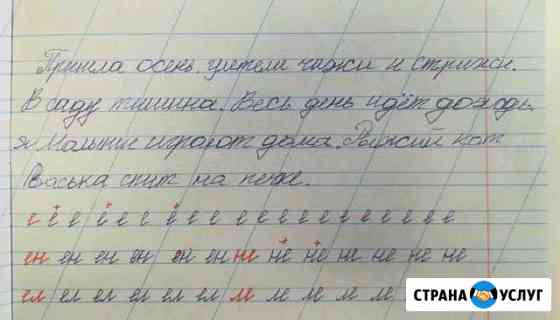 Пришла осень. улетели чижи и стрижи.
В саду тишина. Весь день идёт дождь
я Малыши играют дома. Рыжий кот
Васька спит на печке.
е е е е е е е е е е е е е е е е е е е е е
ен ен ен ен ен ен не не не не не не не
ел ел ел ел ел ел ле ле ле ле ле
СТРАНА УСЛУГ